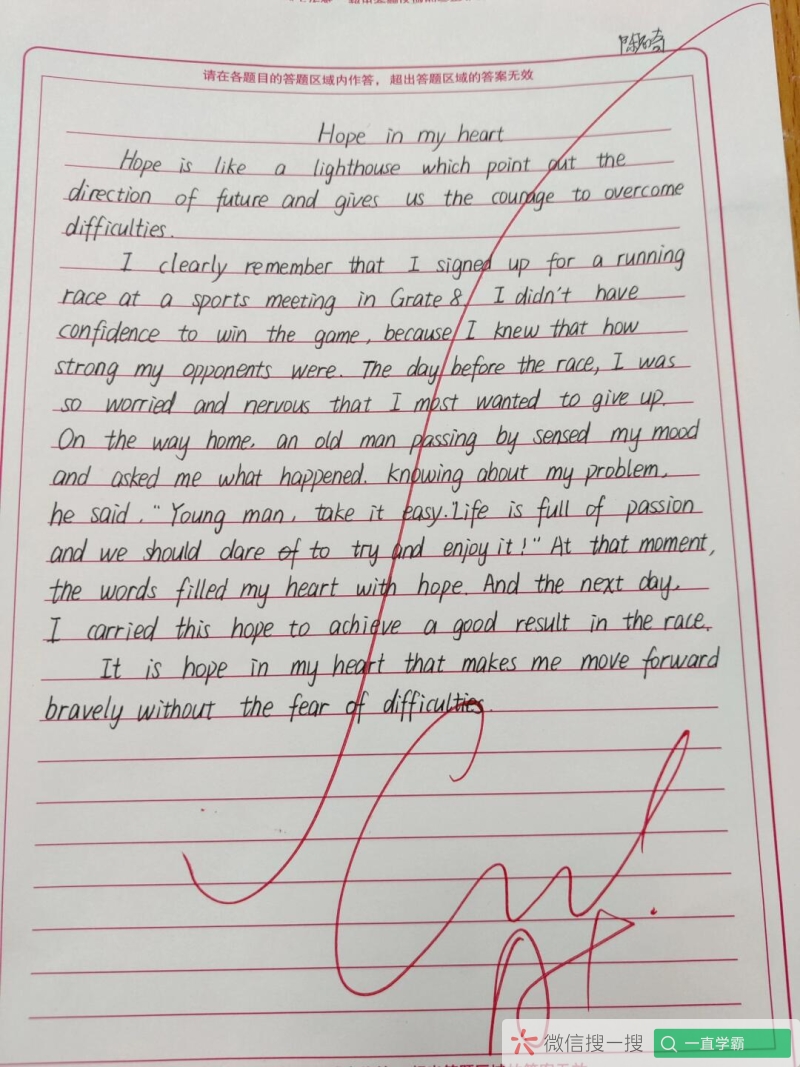 请在各题目的答题区域内作答，超出答题区域的答案无效
Hope in my heart
Hope is like a lighthouse which point out the
direction of future and gives us the courage to overcome
difficulties.
I clearly remember that I signed up for a running
race at a sports meeting in Grate 8. I didn't have
confidence to win the game, because I knew that how
strong my opponents were. The day before the race, I was
so worried and nervous that I most wanted to give up.
On the way home, an old man passing by sensed my mood
and asked me what happened. Knowing about my problem,
he said, "Young man, take it easy. Life is full of passion
and we should dare of to try and enjoy it!" At that moment,
the words filled my heart with hope. And the next day,
I carried this hope to achieve a good result in the race.
It is hope in my heart that makes me move forward
bravely without the fear of difficulties.
A+
微信搜一搜
一直学霸